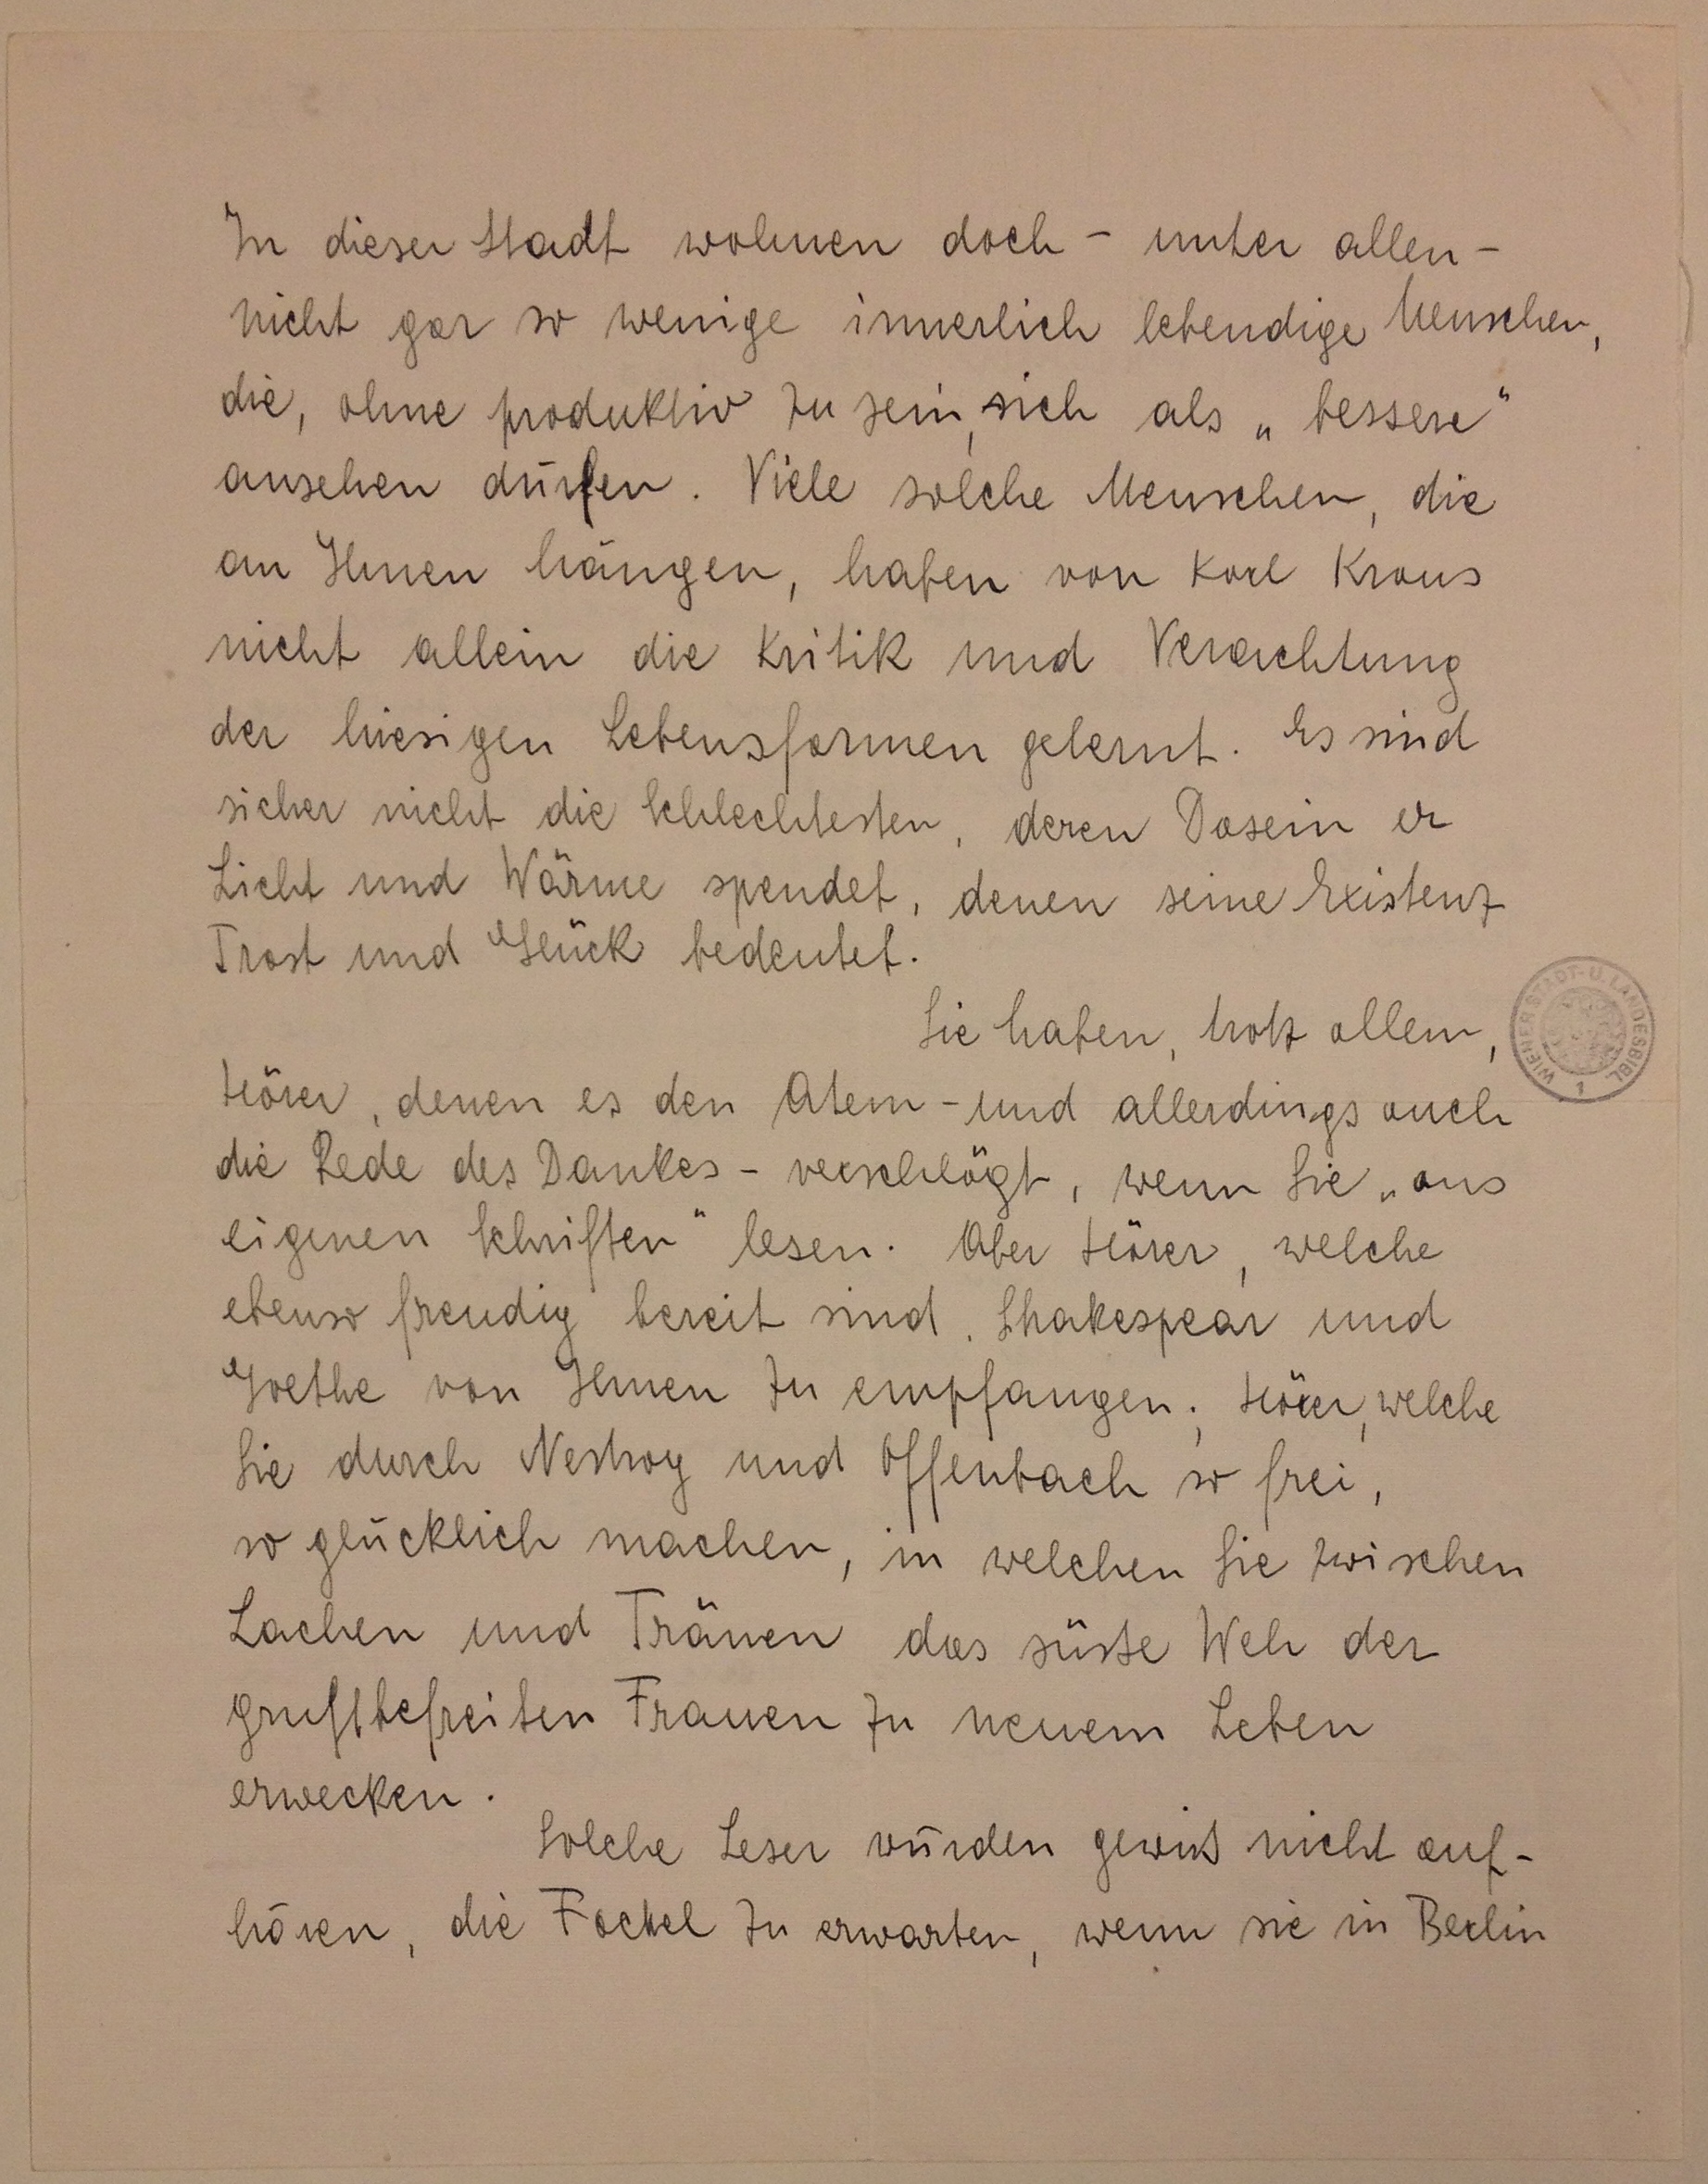 In dieser Stadt wohnen doch – unter allen –
nicht gar so wenige innerlich lebendige Menschen,
die, ohne produktiv zu sein, sich als „bessere“
ansehen dürfen. Viele solche Menschen, die
an Ihnen hängen, haben von Karl Kraus
nicht allein die Kritik und Verachtung
der hiesigen Lebensformen gelernt. Es sind
sicher nicht die Schlechtesten, deren Dasein er
Licht und Wärme spendet, denen seine Existenz
Trost und Glück bedeutet.
Sie haben, trotz allem,
Hörer, denen es den Atem – und allerdings auch
die Rede des Dankes – verschlägt, wenn Sie „aus
eigenen Schriften“ lesen. Aber Hörer, welche
ebenso freudig bereit sind, Shakespear und
Goethe von Ihnen zu empfangen; Hörer, welche
Sie durch Nestroy und Offenbach so frei,
so glücklich machen, in welchen Sie zwischen
Lachen und Tränen das süsse Weh der
gruftbefreiten Frauen zu neuem Leben
erwecken.
Solche Leser würden gewiß nicht auf-
hören, die Fackel zu erwarten, wenn sie in Berlin
WIENER STADT- U. LANDESBIBL.
1